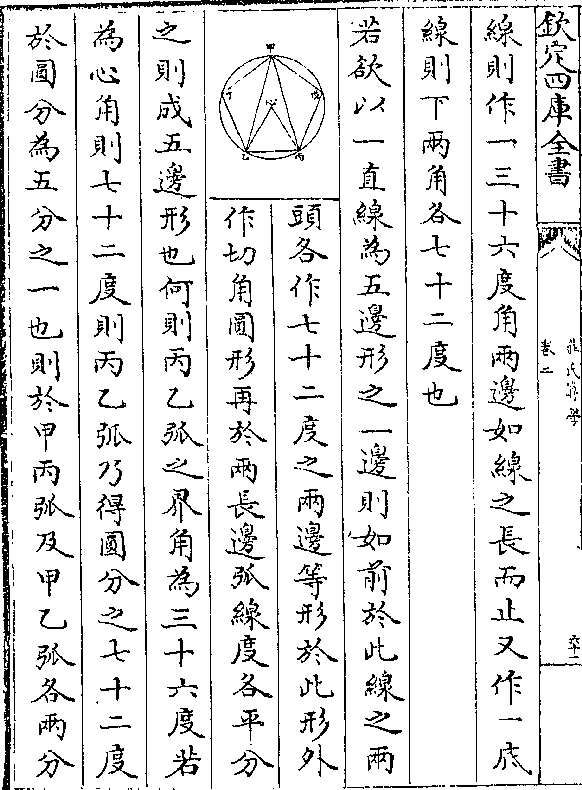 欽定四庫全書
莊氏算學
卷二
六十二
線則作一三十六度角兩邊如線之長而止又作一底
線則下兩角各七十二度也
若欲以一直線為五邊形之一邊則如前於此線之兩
頭各作七十二度之兩邊等形於此形外
作切角圓形再於兩長邊弧線度各平分
之則成五邊形也何則丙乙弧之界角為三十六度若
為心角則七十二度則丙乙弧乃得圓分之七十二度
於圓分為五分之一也則於甲丙弧及甲乙弧各兩分
甲
戊
丁
乙
丙